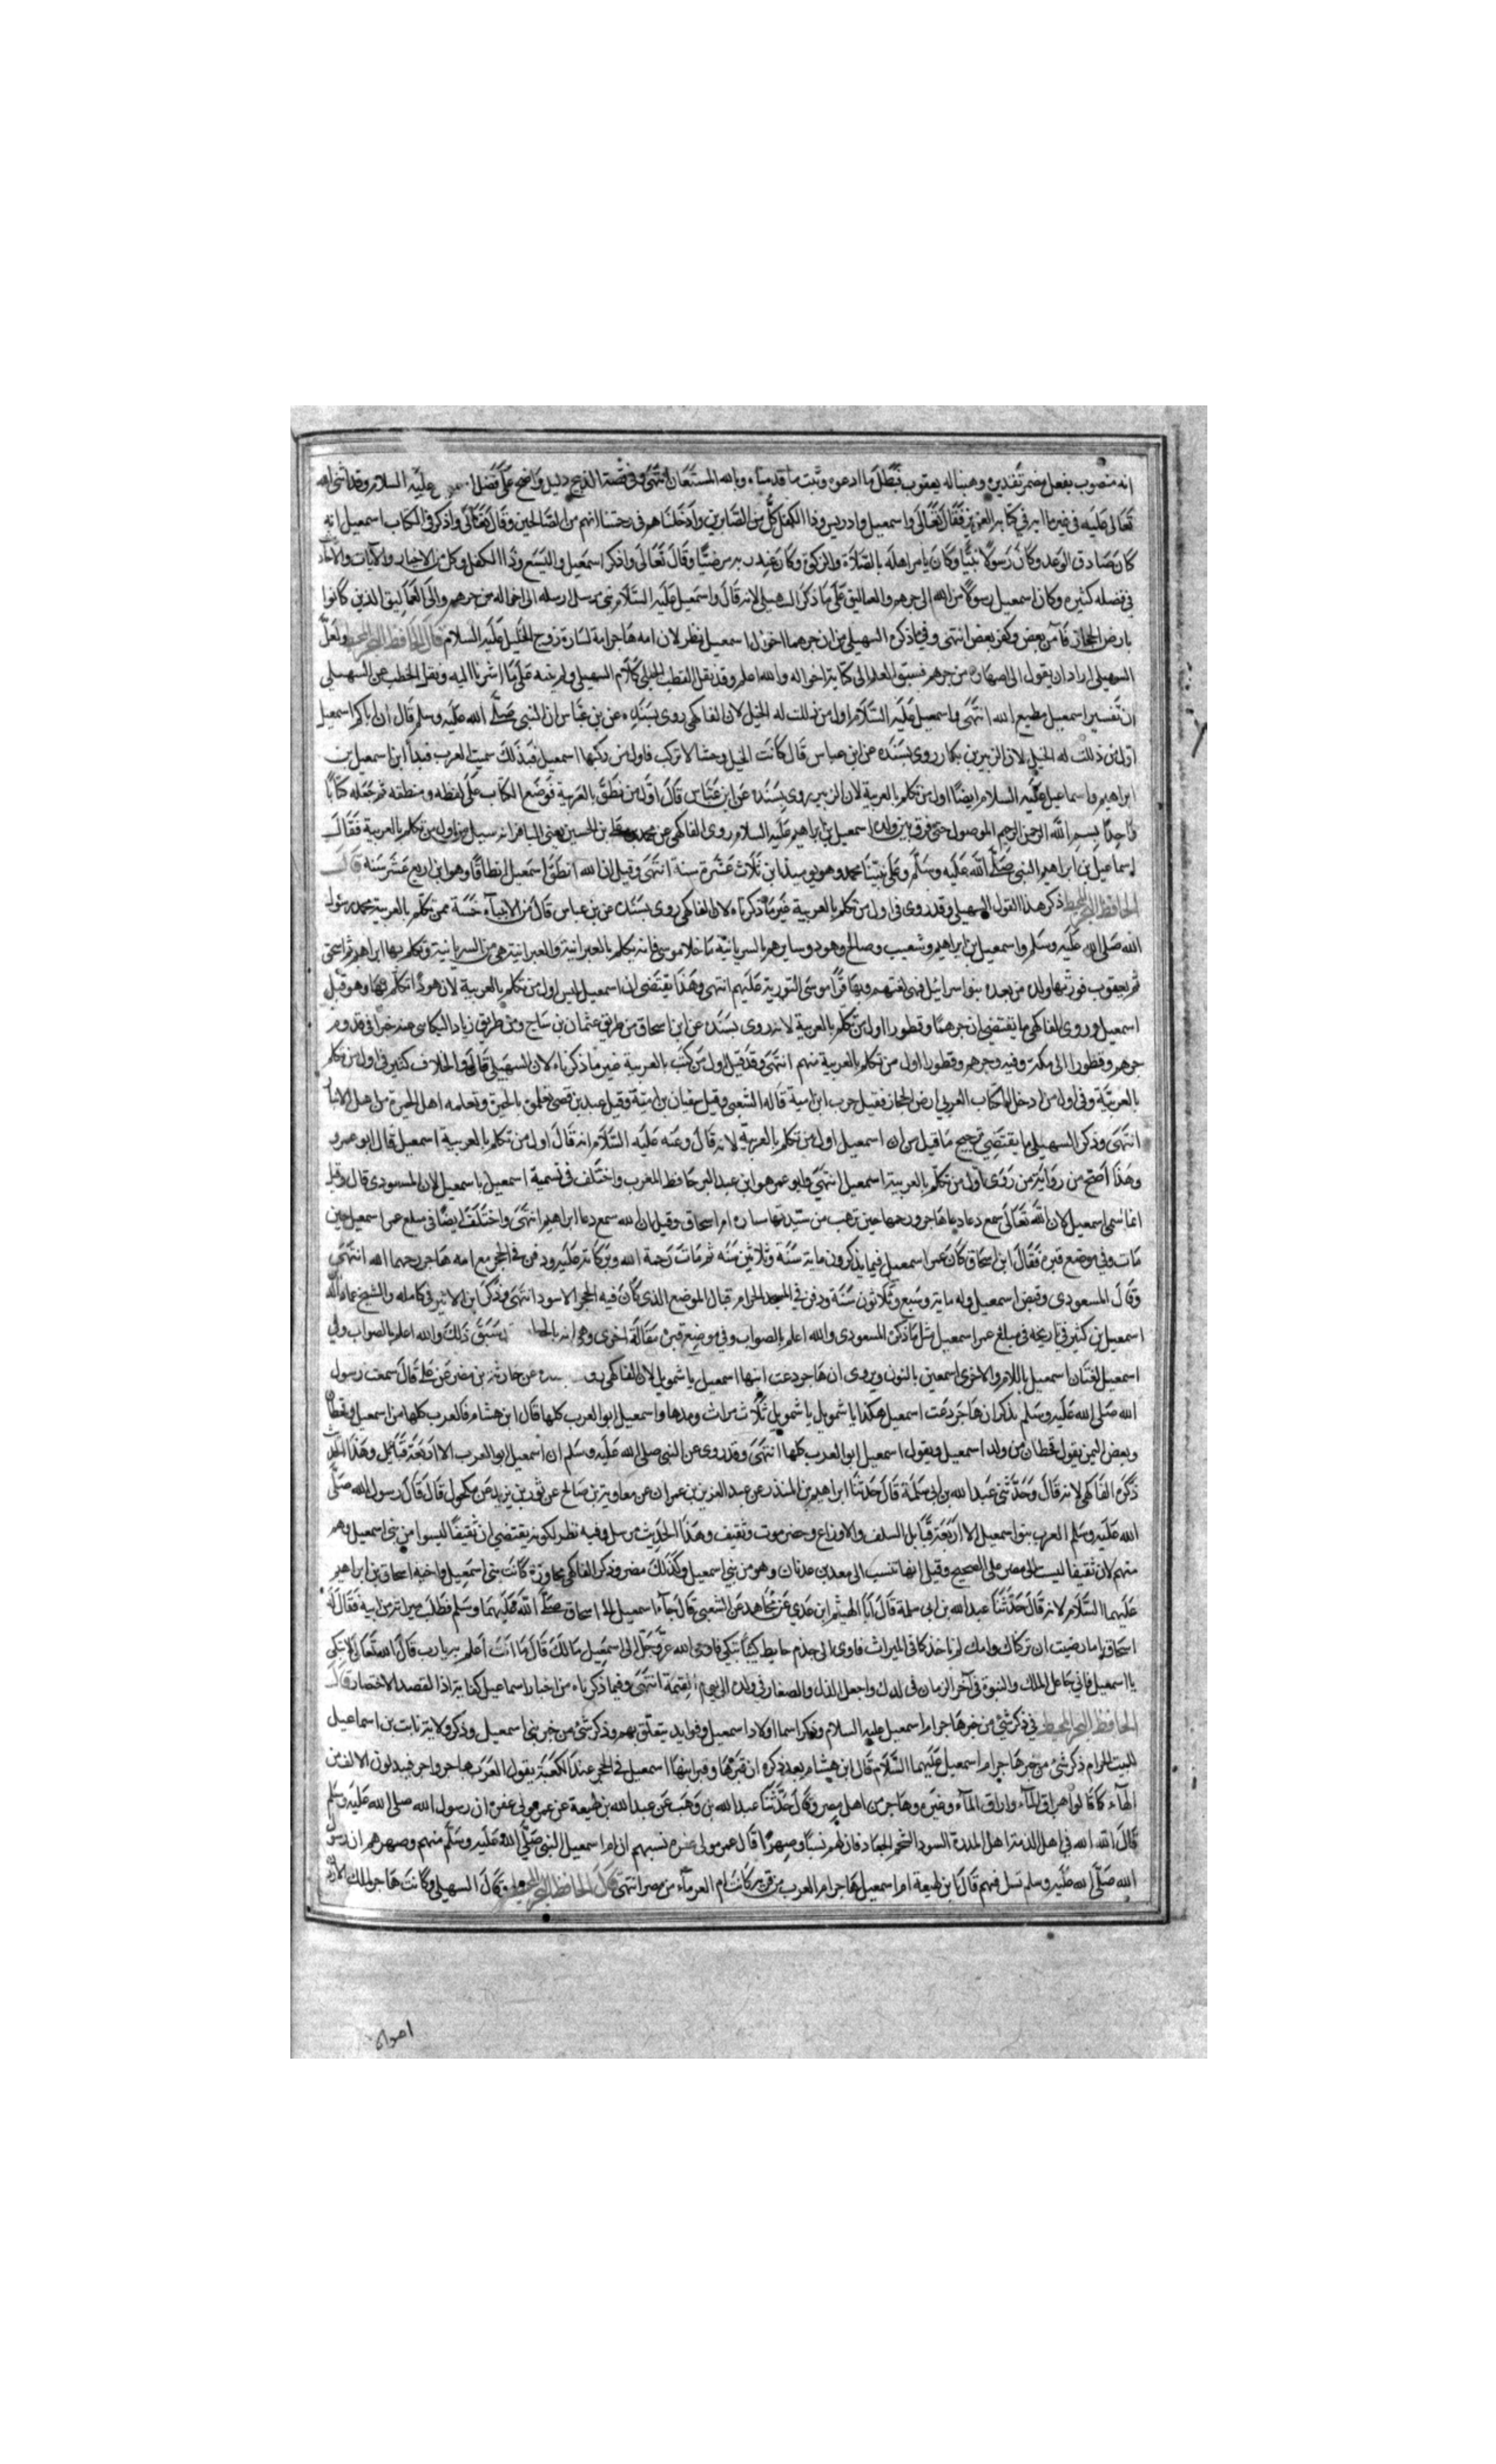 انه منصوب بفعل مضمر تقديره وهبنا له يعقوب فبطل ما ادعوه وثبت ما قدمناه وبالله المستعان انتهى وفي قصة الذبيح دليل واضح على فضل اسمعيل عليه السلام وقد اثنى الله
تعالى عليه في غير ما اية في كتابه العزيز فقال تعالى واسمعيل وادريس وذا الكفل كل من الصابرين وادخلناهم في رحمتنا انهم من الصالحين وقال تعالى واذكر في الكتاب اسمعيل انه
كان صادق الوعد وكان رسولا نبيا وكان يامر اهله بالصلاة والزكوة وكان عند ربه مرضيا وقال تعالى واذكر اسمعيل واليسع وذا الكفل وكل من الاخيار والايات والاحاد
في فضله كثيره وكان اسمعيل رسولا من الله الى جرهم والعماليق على ما ذكر السهيلي لانه قال واسمعيل عليه السلام نبي مرسل ارسله الى اخواله من جرهم والى العماليق الذين كانوا
بارض الحجاز فامن بعض وكفر بعض انتهى وفيما ذكره السهيلي من ان جرهما اخوال اسمعيل نظر لان امه هاجر امة لسارة زوج الخليل عليه السلام قال الحافظ البحر المحيط ولعل
السهيلي اراد ان يقول الى اصهاره من جرهم فسبق القلم الى كتابة اخواله والله اعلم وقد نقل القطب الحلبي كلام السهيلي ولم ينبه على ما اشرنا اليه ونقل القطب عن السهيلي
ان تفسير اسمعيل مطيع الله انتهى واسمعيل عليه السلام اول من ذللت له الخيل لان الفاكهي روى بسنده عن بن عباس ان النبي صلى الله عليه وسلم قال ان اباكم اسمعيل
اول من ذللت له الخيل لان الزبير بن بكار روى بسنده عن ابن عباس قال كانت الخيل وحشا لا تركب فاول من ركبها اسمعيل فبذلك سميت العرب فبدا ابن اسمعيل بن
ابراهيم واسماعيل عليه السلام ايضا اول من تكلم بالعربية لان الزبير روى بسنده عن ابن عباس قال اول من نطق بالعربية فوضع الكتاب على لفظه ومنطقه ثم جعله كتابا
واحدا بسم الله الرحمن الرحيم الموصول حتى فرق بين ولده اسمعيل بن ابراهيم عليه السلام روى الفاكهي عن محمد بن علي بن الحسين يعني الباقر انه سيل من اول من تكلم بالعربية فقال
اسماعيل بن ابراهيم النبي صلى الله عليه وسلم وعلى نبينا محمد وهو يوميذ ابن ثلاث عشرة سنة انتهى وقيل ان الله انطق اسمعيل انطاقا وهو ابن اربع عشر سنة قال
الحافظ البحر المحيط ذكر هذا القول السهيلي وقد روى في اول من تكلم بالعربية غير ما ذكرناه لان الفاكهي روى بسنده عن بن عباس قال من الانبياء خمسة ممن تكلم بالعربية محمد رسول
الله صلى الله عليه وسلم واسمعيل بن ابراهيم وشعيب وصالح وهود وسايرهم بالسريانية ما خلا موسى فانه تكلم بالعبرانية والعبرانية هي من السريانية وتكلم بها ابراهيم ثم اسحق
ثم يعقوب فورثها ولده من بعده بنوا اسرائيل فهي لغتهم وبها قرا موسى التورية عليهم انتهى وهذا يقتضى ان اسمعيل ليس اول من تكلم بالعربية لان هودا تكلم بها وهو قبل
اسمعيل وروى الفاكهي ما يقتضي ان جرهما وقطورا اول من تكلم بالعربية لانه روى بسنده عن ابن اسحاق من طريق عثمان بن ساج ومن طريق زياد البكاى عنه خبرا في قدوم
جرهم وقطورا الى مكة وفيه وجرهم وقطورا اول من تكلم بالعربية منهم انتهى وقد قيل اول من كتب بالعربية غير ما ذكرناه لان السهيلي قال والخلاف كثير في اول من تكلم
بالعربية وفي اول من ادخل الكتاب العربي ارض الحجاز فقيل حرب ابن امية قاله الشعبي وقيل سفيان بن امية وقيل عبد بن قصي تعلمه بالحيرة وتعلمه اهل الحيرة من اهل الانبار
انتهى وذكر السهيلي ما يقتضي ترجيح ما قيل من ان اسمعيل اول من تكلم بالعربية لانه قال وعنه عليه السلام انه قال اول من تكلم بالعربية اسمعيل قال ابو عمرو
وهذا اصح من رواية من روى اول من تكلم بالعربية اسمعيل انتهى وابو عمر هو ابن عبد البر حافظ المغرب واختلف في تسمية اسمعيل باسمعيل لان المسعودى قال وقيل
انما سمى اسمعيل لان الله تعالى سمع دعا هاجر ورحمها حين هرب من سيدتها ساره ام اسحاق وقيل ان الله سمع دعا ابراهيم انتهى واختلف ايضا في مبلغ عمر اسمعيل حين
مات وفي موضع قبره فقال ابن اسحاق كان عمر اسمعيل فيما يذكرون ماية سنة وثلاثين سنه ثم مات رحمة الله وبركاته عليه ودفن في الحجر مع امه هاجر رحمها الله انتهى
وقال المسعودى وقبض اسمعيل وله ماية وسبع وثلاثون سنة ودفن في المسجد الحرام قبال الموضع الذى كان فيه الحجر الاسود انتهى وذكر ابن الاثير في كامله والشيخ عماد الدين
اسمعيل بن كثير في تاريخه في مبلغ عمر اسمعيل مثل ما ذكره المسعودى والله اعلم بالصواب وفي موضع قبره مقالة اخرى وهي انه بالحطيم سبق ذلك والله اعلم بالصواب وفي
اسمعيل لغتان اسمعيل باللام والاخرى اسمعين بالنون ويروى ان هاجر دعت ابنها اسمعيل يا شمويل لان الفاكهي روى بسنده عن حارثة بن مضرعن علي قال سمعت رسول
الله صلى الله عليه وسلم يذكر ان هاجر دعت اسمعيل هكذا يا شمويل يا شمويل ثلاث مراث ومدها واسمعيل ابو العرب كلها قال ابن هشام فالعرب كلها من اسمعيل وقحطان
وبعض اليمن يقول قحطان من ولد اسمعيل ويقول اسمعيل ابو العرب كلها انتهى وقد روى عن النبي صلى الله عليه وسلم ان اسمعيل ابو العرب الا اربعة قبايل وهذا الحديث
ذكره الفاكهي لانه قال وحدثنى عبد الله بن ابي سلمة قال حدثنا ابراهيم بن المنذر عن عبد العزيز بن عمران عن معاوية بن صالح عن ثور بن يزيد عن مكحول قال قال رسول الله صلى
الله عليه وسلم العرب بنوا اسمعيل الا اربعة قبايل السلف والاوزاع وحضرموت وثقيف وهذا الحديث مرسل وفيه نظر لكونه يقتضي ان ثقيفا ليسوا من بنى اسمعيل وهم
منهم لان ثقيفا ليست الى مضر على الصحيح وقيل انها تنسب الى معد بن عدنان وهو من بني اسمعيل وكذلك مضر وذكر الفاكهي محاورة كانت بين اسمعيل واخيه اسحاق بن ابراهيم
عليهما السلام لانه قال حدثنا عبد الله بن ابي سلمة قال ابا الهيثم ابن عدي عن مجاهد عن الشعبي قال جاء اسمعيل الى اسحاق صلى الله عليهما وسلم فطلب ميراثه من ابيه فقال له
اسحاق اما رضيت ان تركناك وامك لم ناخذكما في الميراث فاوى الى جذم حايط كئيبا يبكي فاوحى الله عز وجل الى اسمعيل مالك قال ما انت اعلم به يا رب قال الله تعالى لا تبكي
يا اسمعيل فاني جاعل الملك والنبوة في آخر الزمان في ولدك واجعل الذل والصغار في ولده الى يوم القيمة انتهى وفيما ذكرناه من اخبار اسماعيل كفاية اذا القصد الاختصار قال
الحافظ البحر المحيط في ذكر شئ من خبر هاجر ام اسمعيل عليه السلام وذكر اسما اولاد اسمعيل وفوايد يتعلق بهم وذكر شئ من خبر بني اسمعيل وذكر ولاية نابت بن اسماعيل
للبيت الحرام ذكر شئ من خبر هاجر ام اسمعيل عليهما السلام قال ابن هشام بعد ذكره ان قبرها وقبر ابنها اسمعيل في الحجر عند الكعبة يقول العرب هاجر واجر فيبدلون الالف من
الهاء كما قالوا هراق الماء واراق الماء وغيره وهاجر من اهل مصر وقال حدثنا عبد الله بن وهب عن عبد الله بن لهيعة عن عمر مولى عفره ان رسول الله صلى الله عليه وسلم
قال الله الله في اهل الذمة اهل المدرة السود السحم الجعاد فان لهم نسبا وصهرا قال عمر مولى عفره نسبهم ان ام اسمعيل النبي صلى الله عليه وسلم منهم وصهرهم ان رسول
الله صلى الله عليه وسلم تسل فيهم قال ابن لهيعة ام اسمعيل هاجر ام العرب من قرية كانت ام العرماء من مصر انتهى قال الحافظ البحر المحيط وقال السهيلي وكانت هاجر لملك الاردن